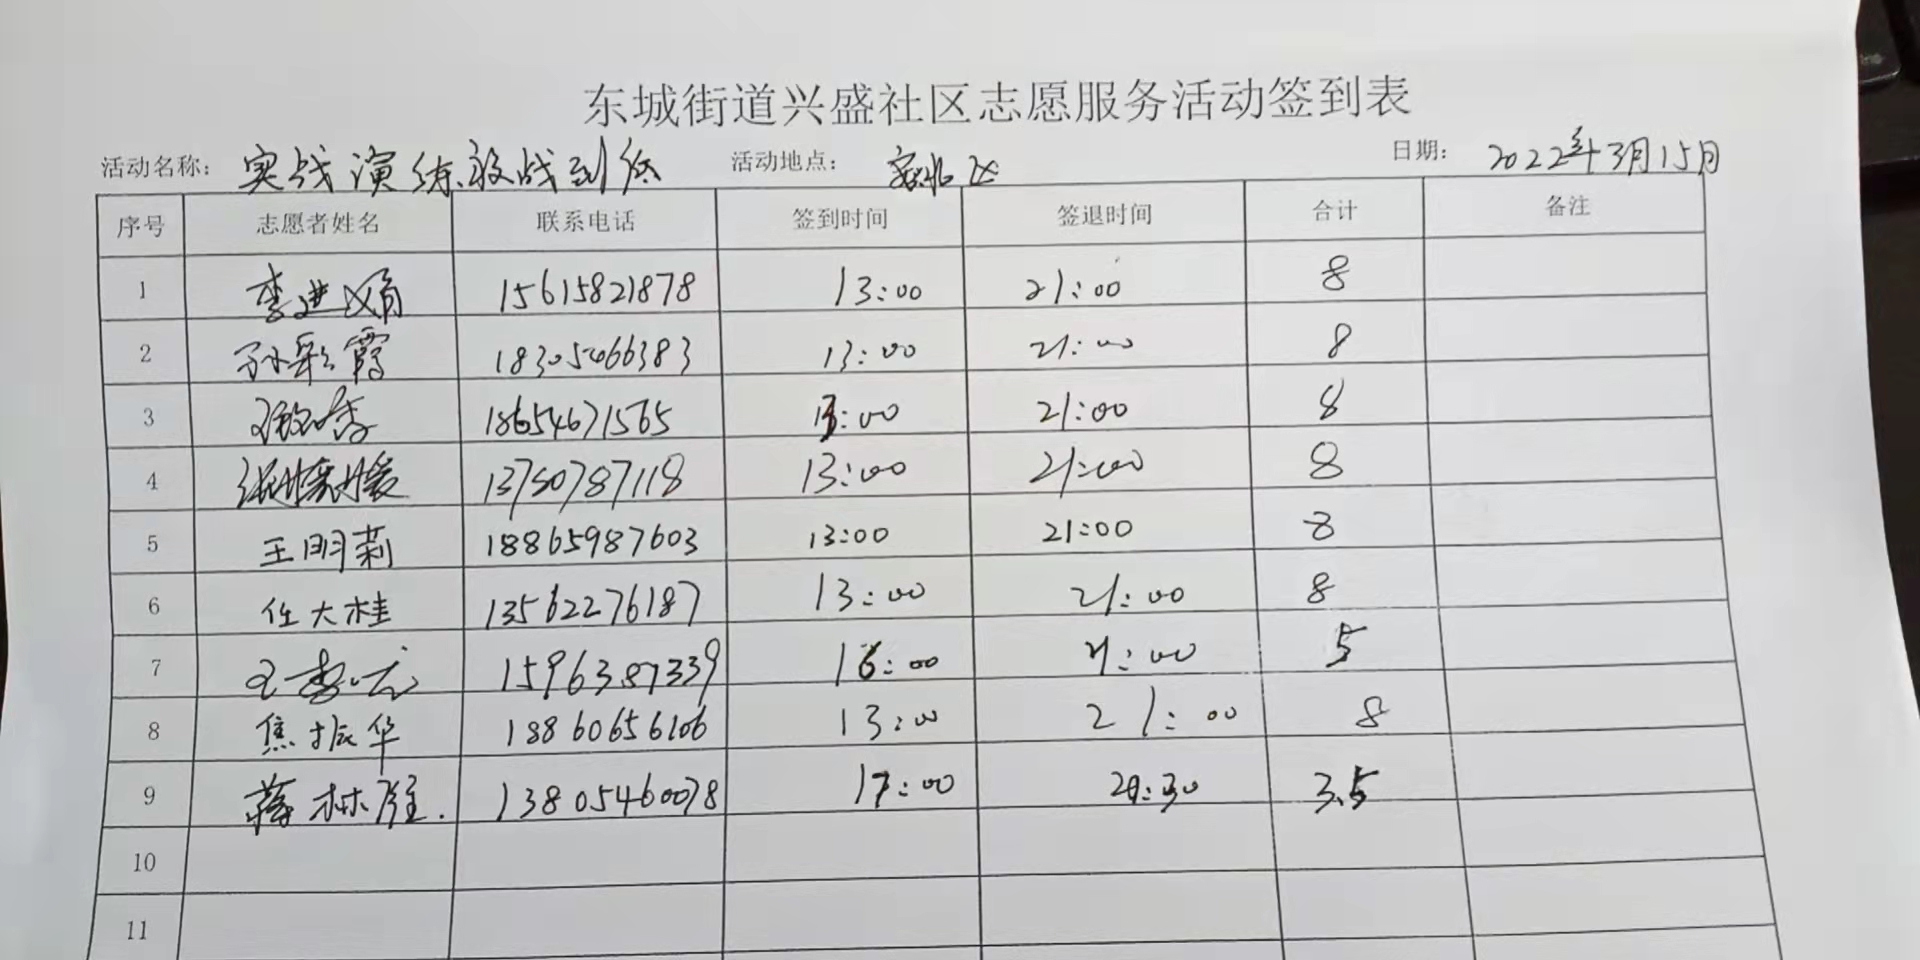 东城街道兴盛社区志愿服务活动签到表
活动名称: 实战演练 敢战到底 活动地点: 安北区 日期: 2022年3月15日
序号 志愿者姓名 联系电话 签到时间 签退时间 合计 备注
1 李进娟 15615821878 13:00 21:00 8
2 孙彩霞 18305466383 13:00 21:00 8
3 18654671565 13:00 21:00 8
4 13750787118 13:00 21:00 8
5 王明莉 18865987603 13:00 21:00 8
6 任大桂 13562276187 13:00 21:00 8
7 15963587339 16:00 21:00 5
8 焦振华 18860656106 13:00 21:00 8
9 蒋林胜 13805460078 17:00 20:30 3.5
10
11